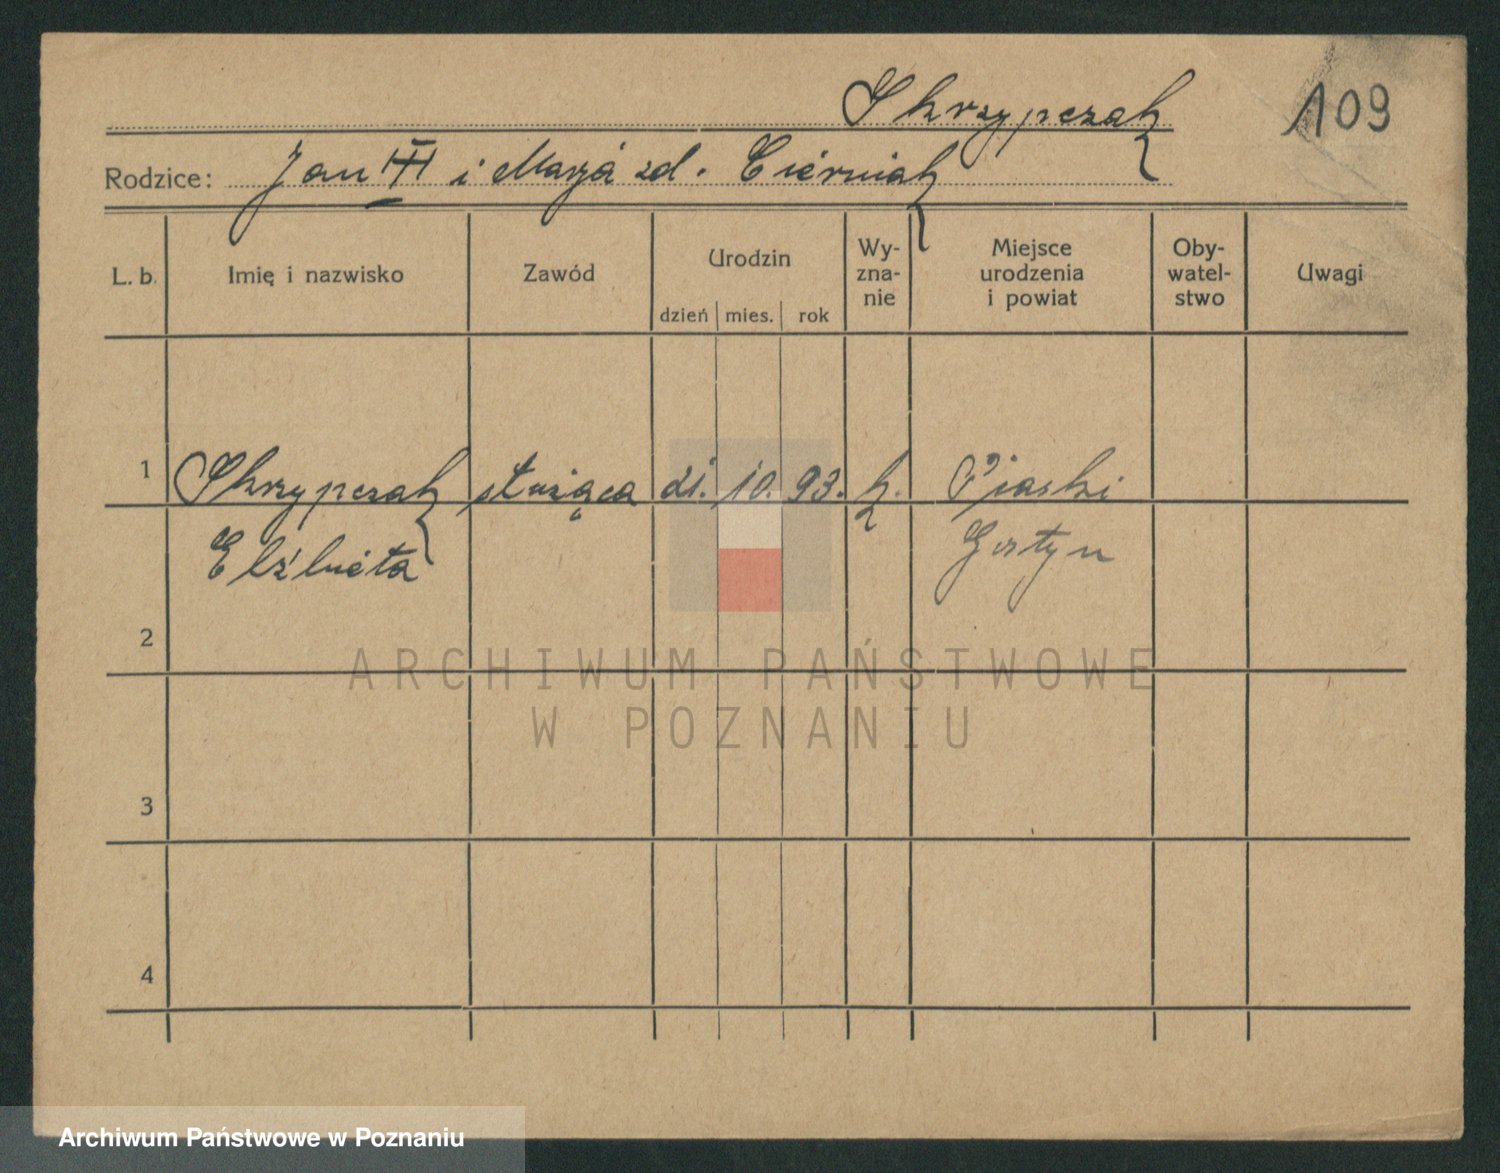 Skrzypczak
109
Rodzice: Jan i Marja zd. Cierniak
L. b. Imię i nazwisko Zawód Urodzin dzień mies. rok Wy-zna-nie Miejsce urodzenia i powiat Oby-watel-stwo Uwagi
1 Skrzypczak służąca 21. 10. 93. k. Piaski
Elżbieta Gostyn
2
ARCHIWUM PAŃSTWOWE
W POZNANIU
3
4
Archiwum Państwowe w Poznaniu